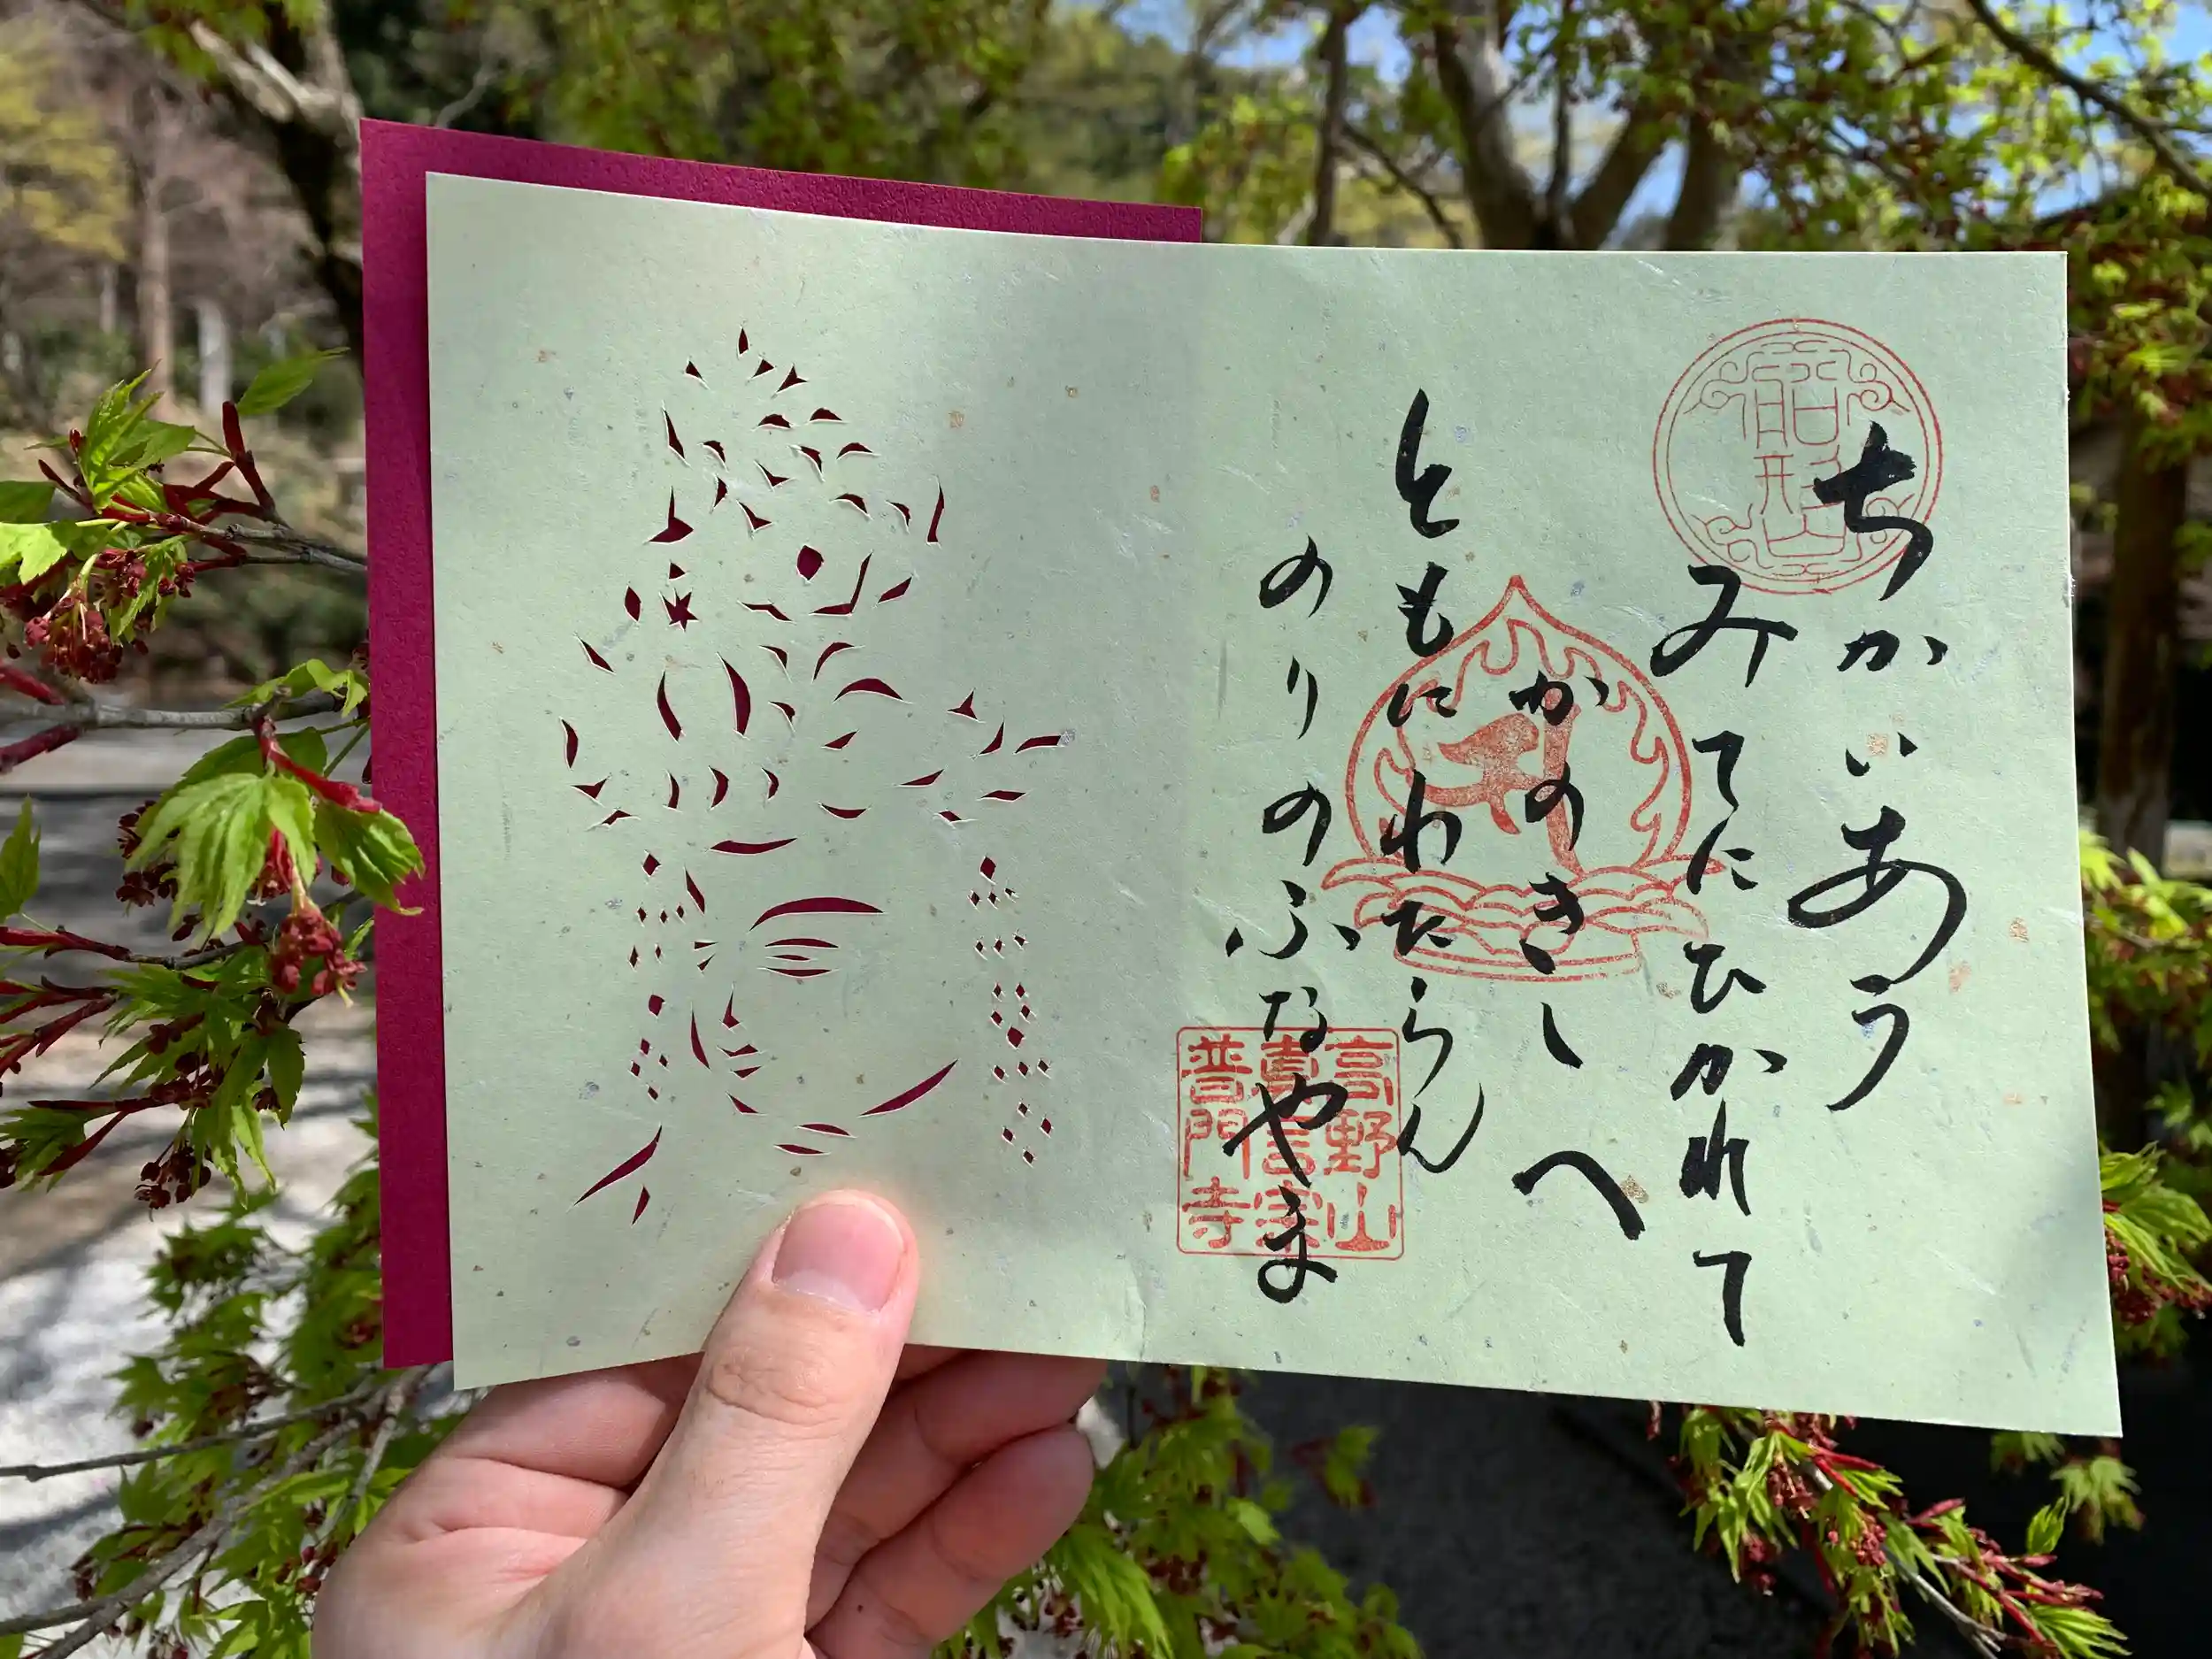 ちかいあう
みてにひかれて
かのきしへ
ともにわたらん
のりのふなやま
船形山
高野山
真言宗
普門寺